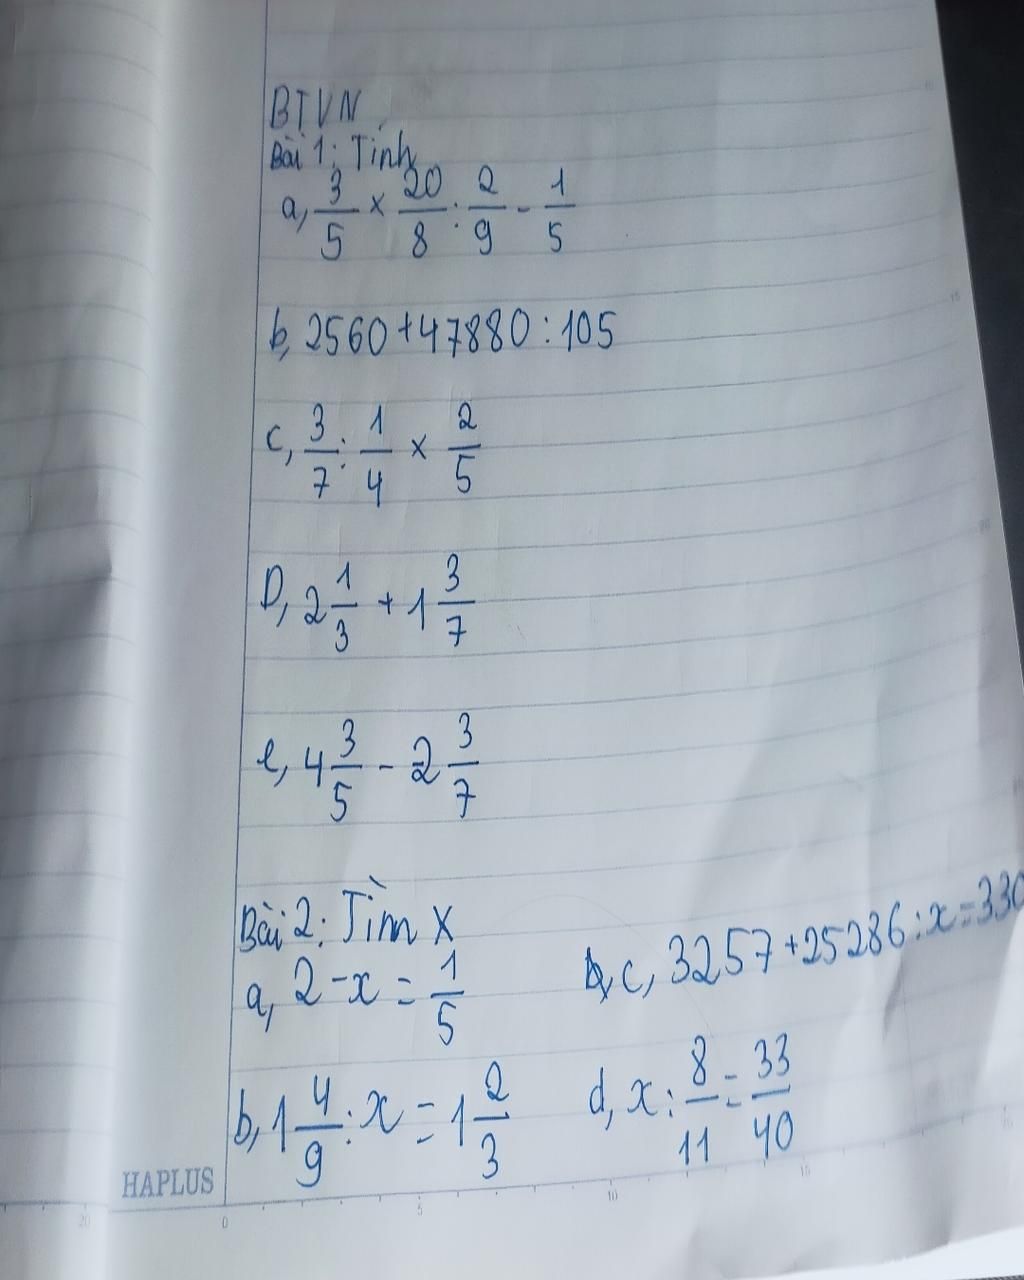 BTVN
Bài 1: Tính
a, 3/5 × 20/8 : 2/9 - 1/5
b, 2560 + 47880 : 105
c, 3/7 : 1/4 × 2/5
D, 2 1/3 + 1 3/7
e, 4 3/5 - 2 3/7
Bài 2: Tìm X
a, 2 - x = 1/5
c, 3257 + 25286 : x = 330
b, 1 4/9 : x = 1 2/3
d, x : 8/11 = 33/40
HAPLUS
20 0 5 10 15